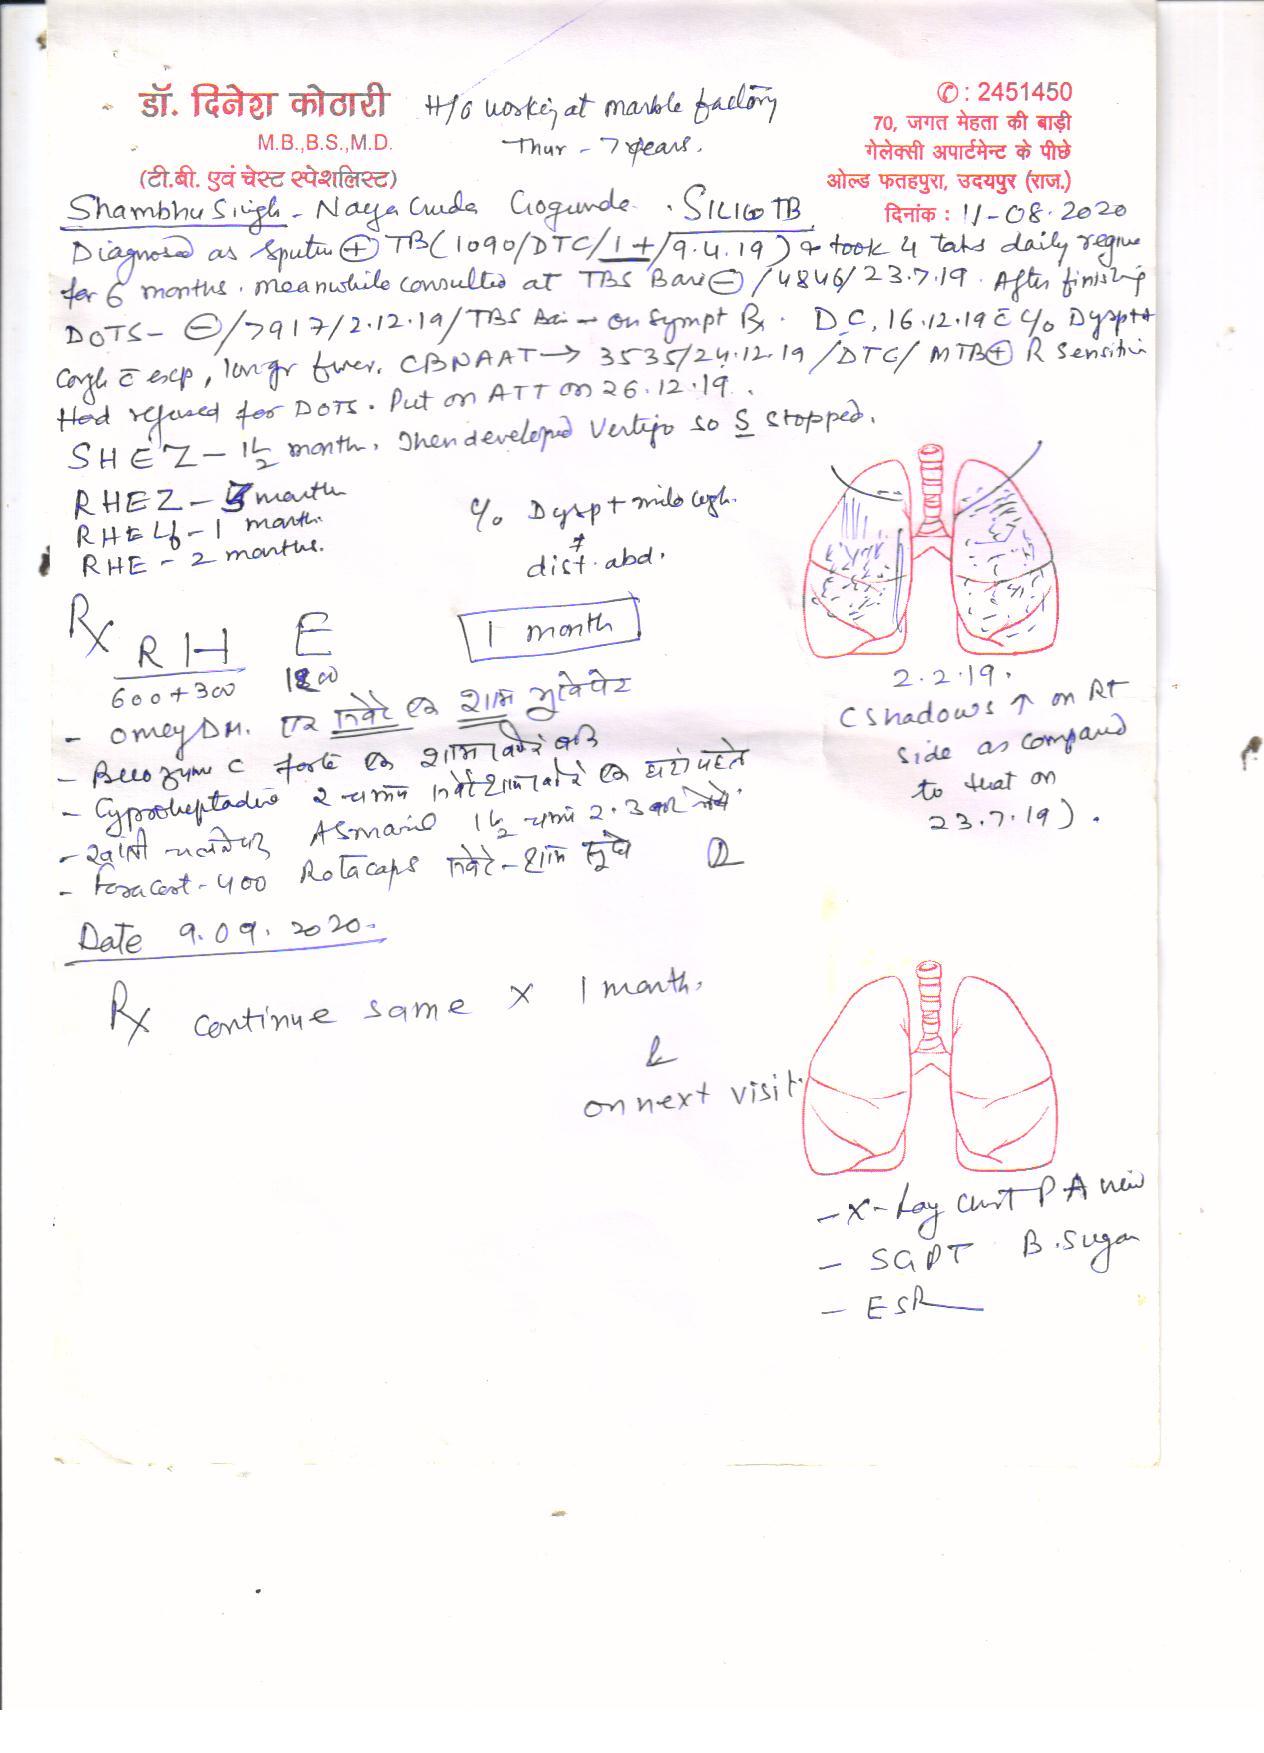 डॉ. दिनेश कोठारी
M.B.,B.S.,M.D.
(टी.बी. एवं चेस्ट स्पेशलिस्ट)
H/o working at marble factory
Thur - 7 years.
✆ : 2451450
70, जगत मेहता की बाड़ी
गेलेक्सी अपार्टमेन्ट के पीछे
ओल्ड फतहपुरा, उदयपुर (राज.)
दिनांक : 11-08.2020
Shambhu Singh - Naya Guda Gogunda. SILICO TB
Diagnosed as Sputum ⊕ TB (1090/DTC/1+/9.4.19) & took 4 tabs daily regime
for 6 months. meanwhile consulted at TBS Bari ⊖/4846/23.7.19. After finishing
DOTS - ⊖/7917/2.12.19/TBS Bari - on Sympt Rx. D.C, 16.12.19 c̄ c/o Dysp++
Cough c̄ exp, fever. CBNAAT → 3535/24.12.19/DTC/MTB⊕ R Sensitive
Had refused for DOTS. Put on ATT on 26.12.19.
SHEZ - 1½ month. Then developed Vertigo so S stopped.
RHEZ - month
RHE - 1 month.
RHE - 2 months.
c/o Dysp + mild cough.
+
dist. abd.
Rx R H E
600+300
1 month
- Omez DM. एक सवेरे एक शाम भूखे पेट
- Becozyme C forte एक शाम
- Cyproheptadine 2 चम्मच सवेरे शाम एक घंटा पहले
- खांसी चलने पर 1½ चम्मच 2-3 बार लेवे.
- Foracort-400 Rotacaps सवेरे-शाम सूंघे
2.2.19.
(Shadows ↑ on Rt
side as compared
to that on
23.7.19).
Date 9.09.2020.
Rx continue same × 1 month.
&
on next visit.
- X-Ray chest P A view
- SGPT B.Sugar
- ESR